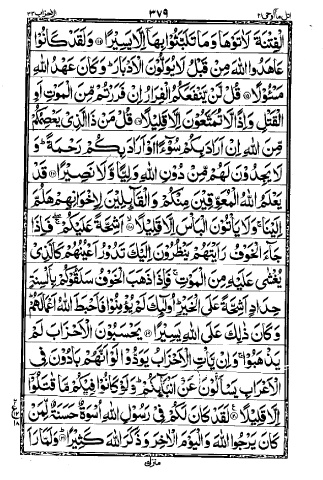 اتل ما اوحی ۲۱ ۳۷۹ الاحزاب ۳۳
الْفِتْنَةَ لَاٰتَوْهَا وَمَا تَلَبَّثُوْا بِهَآ اِلَّا يَسِيْرًا ۝۱۴ وَلَقَدْ كَانُوْا
عَاهَدُوا اللّٰهَ مِنْ قَبْلُ لَا يُوَلُّوْنَ الْاَدْبَارَ ؕ وَكَانَ عَهْدُ اللّٰهِ
مَسْئُوْلًا ۝۱۵ قُلْ لَّنْ يَّنْفَعَكُمُ الْفِرَارُ اِنْ فَرَرْتُمْ مِّنَ الْمَوْتِ اَوِ
الْقَتْلِ وَاِذًا لَّا تُمَتَّعُوْنَ اِلَّا قَلِيْلًا ۝۱۶ قُلْ مَنْ ذَا الَّذِيْ يَعْصِمُكُمْ
مِّنَ اللّٰهِ اِنْ اَرَادَ بِكُمْ سُوْٓءًا اَوْ اَرَادَ بِكُمْ رَحْمَةً ؕ وَلَا
يَجِدُوْنَ لَهُمْ مِّنْ دُوْنِ اللّٰهِ وَلِيًّا وَّلَا نَصِيْرًا ۝۱۷ قَدْ
يَعْلَمُ اللّٰهُ الْمُعَوِّقِيْنَ مِنْكُمْ وَالْقَآئِلِيْنَ لِاِخْوَانِهِمْ هَلُمَّ
اِلَيْنَا ۚ وَلَا يَاْتُوْنَ الْبَاْسَ اِلَّا قَلِيْلًا ۝۱۸ اَشِحَّةً عَلَيْكُمْ ۖ فَاِذَا
جَآءَ الْخَوْفُ رَاَيْتَهُمْ يَنْظُرُوْنَ اِلَيْكَ تَدُوْرُ اَعْيُنُهُمْ كَالَّذِيْ
يُغْشٰى عَلَيْهِ مِنَ الْمَوْتِ ۚ فَاِذَا ذَهَبَ الْخَوْفُ سَلَقُوْكُمْ بِاَلْسِنَةٍ
حِدَادٍ اَشِحَّةً عَلَى الْخَيْرِ ؕ اُولٰٓئِكَ لَمْ يُؤْمِنُوْا فَاَحْبَطَ اللّٰهُ اَعْمَالَهُمْ ؕ
وَكَانَ ذٰلِكَ عَلَى اللّٰهِ يَسِيْرًا ۝۱۹ يَحْسَبُوْنَ الْاَحْزَابَ لَمْ
يَذْهَبُوْا ۚ وَاِنْ يَّاْتِ الْاَحْزَابُ يَوَدُّوْا لَوْ اَنَّهُمْ بَادُوْنَ فِي
الْاَعْرَابِ يَسْاَلُوْنَ عَنْ اَنْبَآئِكُمْ ؕ وَلَوْ كَانُوْا فِيْكُمْ مَّا قٰتَلُوْٓا
اِلَّا قَلِيْلًا ۝۲۰ لَقَدْ كَانَ لَكُمْ فِيْ رَسُوْلِ اللّٰهِ اُسْوَةٌ حَسَنَةٌ لِّمَنْ
كَانَ يَرْجُوا اللّٰهَ وَالْيَوْمَ الْاٰخِرَ وَذَكَرَ اللّٰهَ كَثِيْرًا ۝۲۱ وَلَمَّا رَاَ
منزل